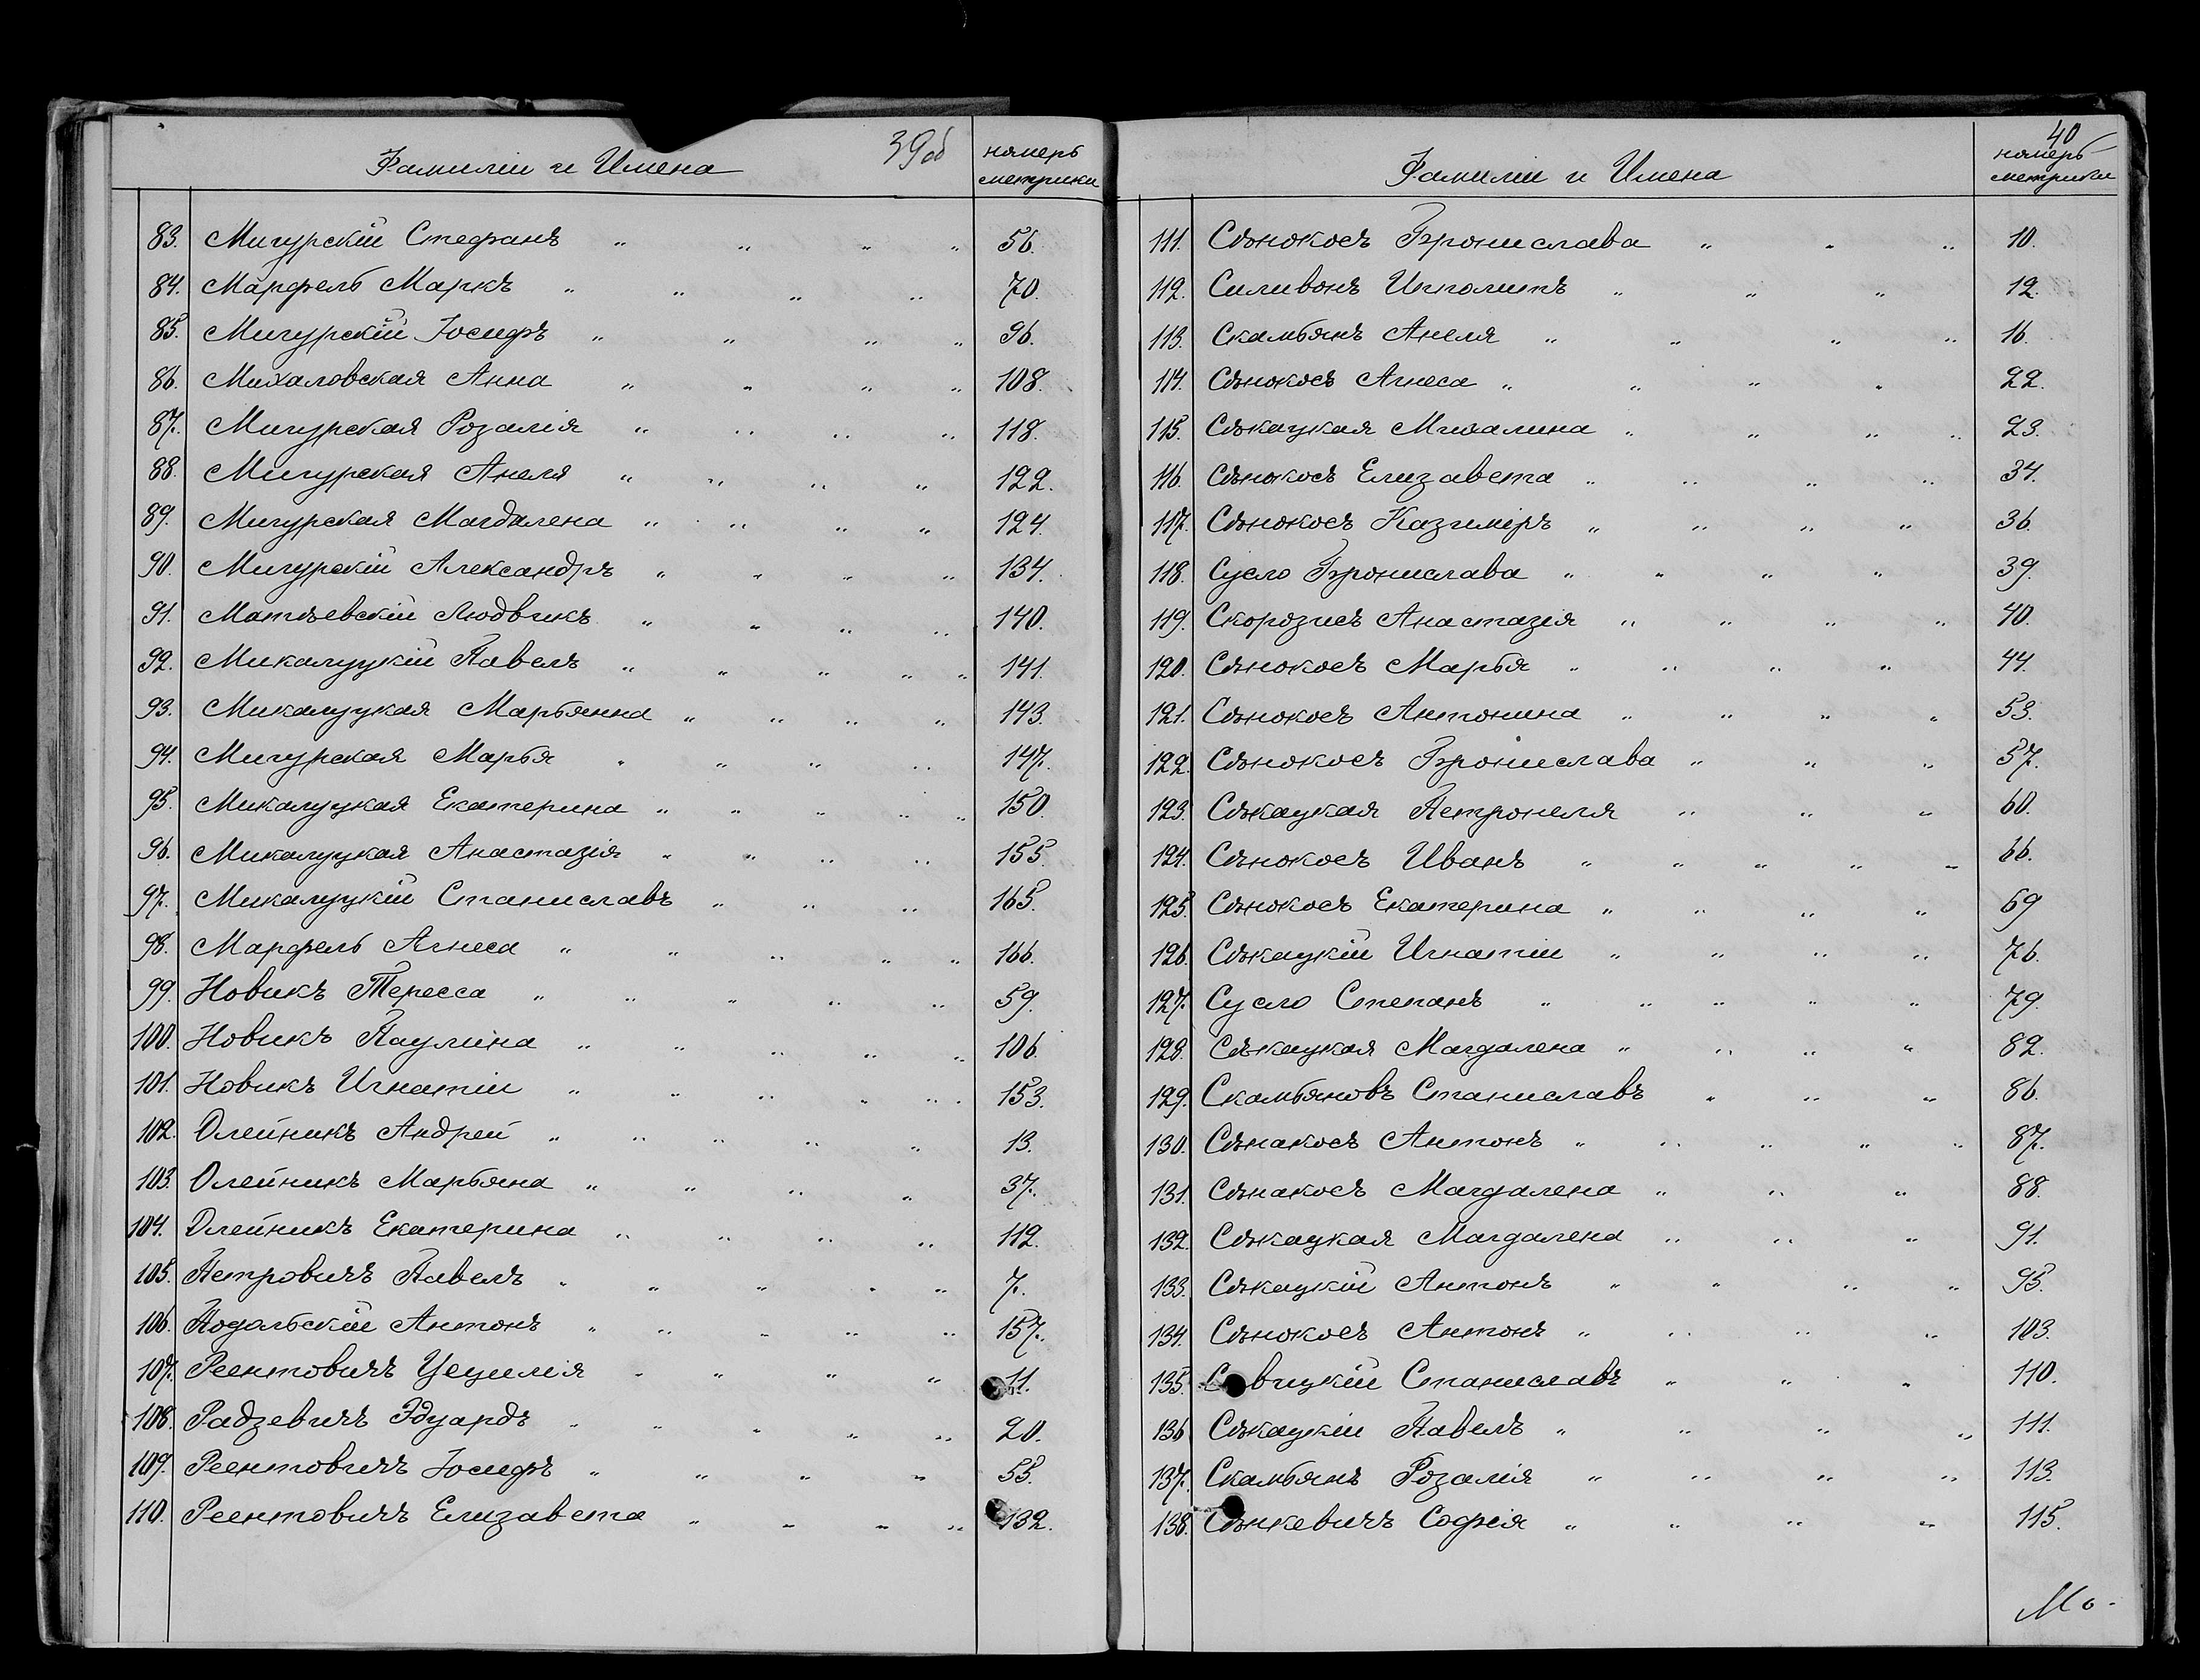 39об
Фамиліи и Имена
номеръ
метрики
83. Мигурскій Стефанъ " " " " 56.
84. Марфель Маркъ " " " " 70.
85. Мигурскій Іосифъ " " " " 96.
86. Михаловская Анна " " " " 108.
87. Мигурская Розалія " " " " 118.
88. Мигурская Анеля " " " " 122.
89. Мигурская Магдалена " " " " 124.
90. Мигурскій Александръ " " " " 134.
91. Матѣевскій Людвикъ " " " " 140.
92. Микалуцкій Павелъ " " " " " 141.
93. Микалуцкая Марьянна " " " " 143.
94. Мигурская Марья " " " " 147.
95. Микалуцкая Екатерина " " " " " 150.
96. Микалуцкая Анастазія " " " " 155.
97. Микалуцкій Станиславъ " " " 165.
98. Марфель Агнеса " " " " " 166.
99. Новикъ Тересса " " " " " 59.
100. Новикъ Паулина " " " " " 106.
101. Новикъ Игнатій " " " " " 153.
102. Олейникъ Андрей " " " " " 13.
103. Олейникъ Марьяна " " " " 37.
104. Олейникъ Екатерина " " " " 112.
105. Петровичъ Павелъ " " " " " 7.
106. Подольскій Антонъ " " " " " 157.
107. Реентовичъ Цецилія " " " " 11.
108. Радзевичъ Эдуардъ " " " " " 20.
109. Реентовичъ Іосифъ " " " " 55.
110. Реентовичъ Елизавета " " " " 132.
40
Фамиліи и Имена
номеръ
метрики
111. Сѣнокосъ Брониславa " " " 10.
112. Силивонъ Ипполитъ " " " 12.
113. Скамьянъ Анеля " " " " 16.
114. Сѣнокосъ Агнеса " " " " 22.
115. Сѣкацкая Михалина " " " " 23.
116. Сѣнокосъ Елизавета " " " " 34.
117. Сѣнокосъ Казиміръ " " " " 36.
118. Сусло Бронислава " " " " 39.
119. Скорозисъ Анастазія " " " " 40.
120. Сѣнокосъ Марья " " " " 44.
121. Сѣнокосъ Антонина " " " " 53.
122. Сѣнокосъ Бронислава " " " 57.
123. Сѣкацкая Петронеля " " " 60.
124. Сѣнокосъ Иванъ " " " " " 66.
125. Сѣнокосъ Екатерина " " " " 69
126. Сѣкацкій Игнатій " " " " 76.
127. Сусло Степанъ " " " " " 79.
128. Сѣкацкая Магдалена " " " " 82.
129. Скамьяновъ Станиславъ " " " 86.
130. Сѣнакосъ Антонъ " " " " " 87.
131. Сѣнакосъ Магдалена " " " 88.
132. Сѣкацкая Магдалена " " " 91.
133. Сѣкацкій Антонъ " " " " 95.
134. Сѣнокосъ Антонъ " " " " 103.
135. Савицкій Станиславъ " " " 110.
136 Сѣкацкій Павелъ " " " " 111.
137. Скамьянъ Розалія " " " " 113.
138. Сѣнкевичъ Софія " " " " 115.